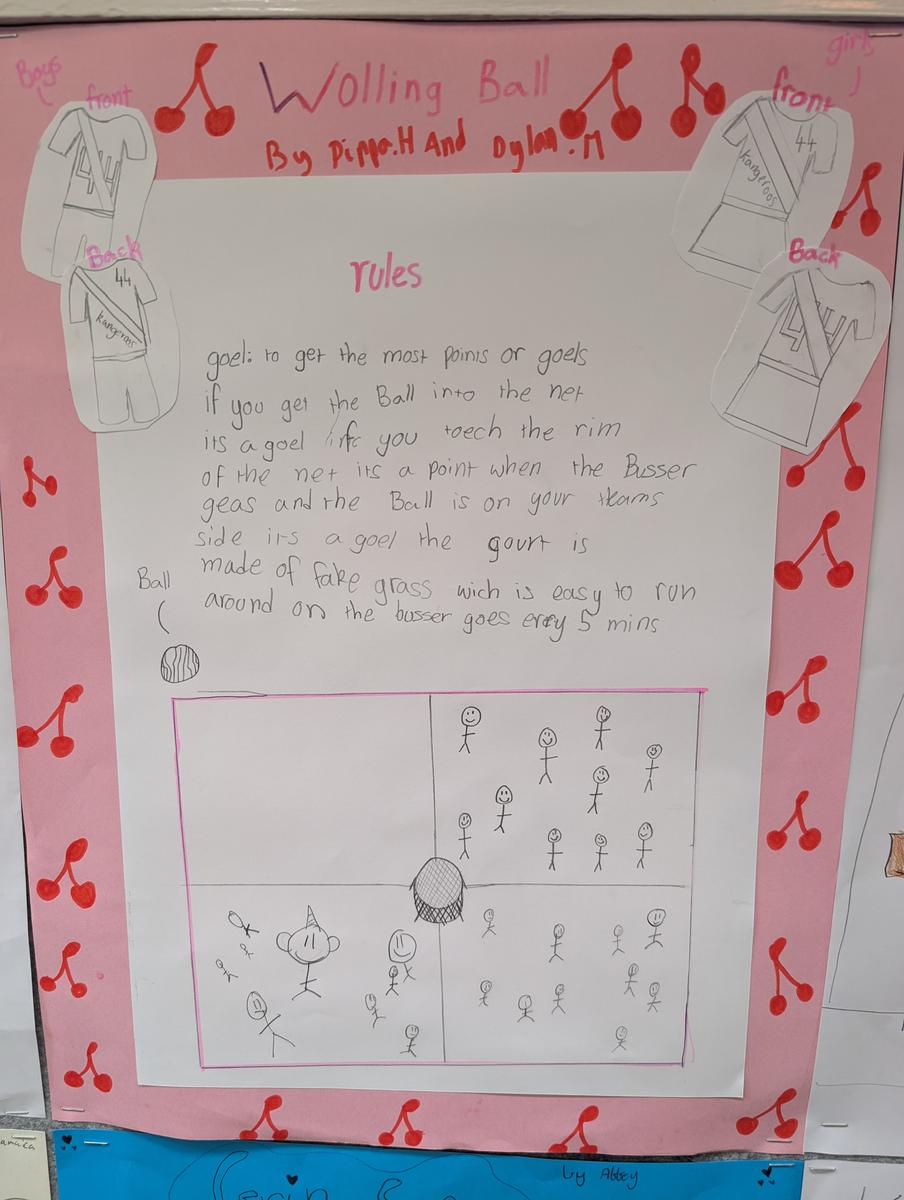 Wolling Ball
By Pippa.H And Dylan.M
Boys
front
44
Back
44
kangeroos
girls
front
44
kangeroos
Back
44
rules
goel: to get the most poinis or goels
if you get the Ball into the net
its a goel if you toech the rim
of the net its a point when the Busser
geas and the Ball is on your teams
side it-s a goel the gourt is
made of fake grass wich is easy to run
around on the busser goes erey 5 mins
Ball
by Abbey